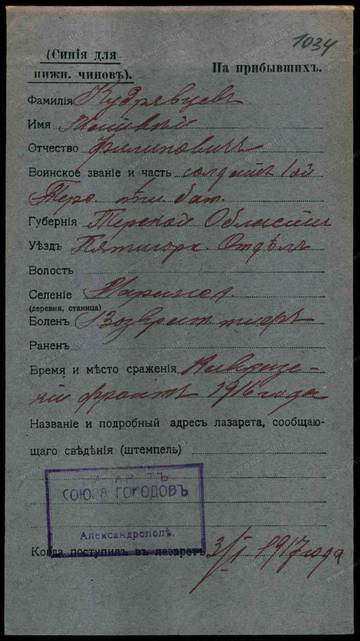 1034
(Синія для
нижн. чиновъ).
На прибывшихъ.
Фамилія Кудрявцевъ
Имя
Отчество Филиповичъ
Воинское званіе и часть солдатъ 1ой
Терс. бат.
Губернія Терской Области
Уѣздъ Пятигорк. Отдѣла
Волость
Селеніе
(деревня, станица)
Боленъ Возврат. тифъ
Раненъ
Время и мѣсто сраженія Кавказс-
кій фронтъ 1916 года
Названіе и подробный адресъ лазарета, сообщаю-
щаго свѣдѣнія (штемпель)
СОЮЗА ГОРОДОВЪ
Александрополѣ.
Когда поступилъ въ лазаретъ 3/I 1917 года